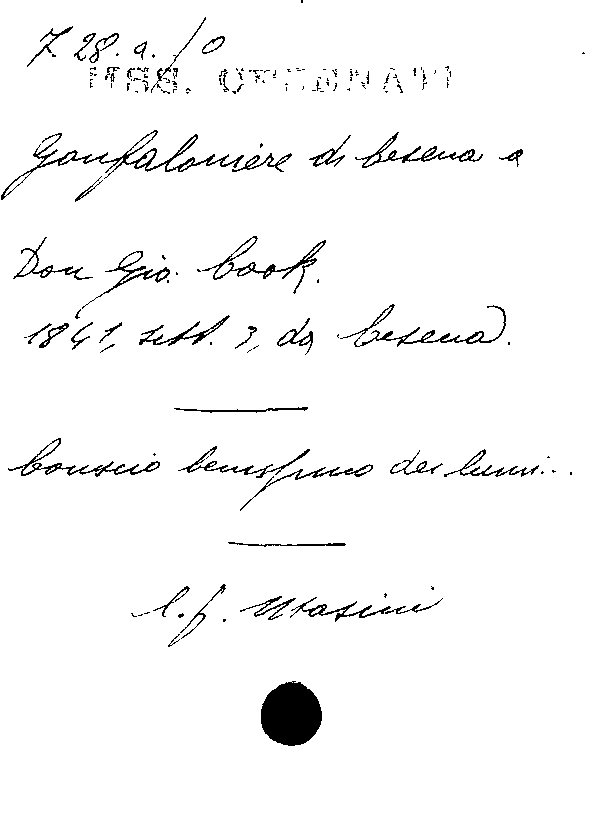 7. 28. a. 10
MSS. OTTONATI
Gonfaloniere di Cesena a
Don Gio. Cook.
1841, sett. 3, da Cesena.
Conscio benissimo dei lumi...
C. f. Masini